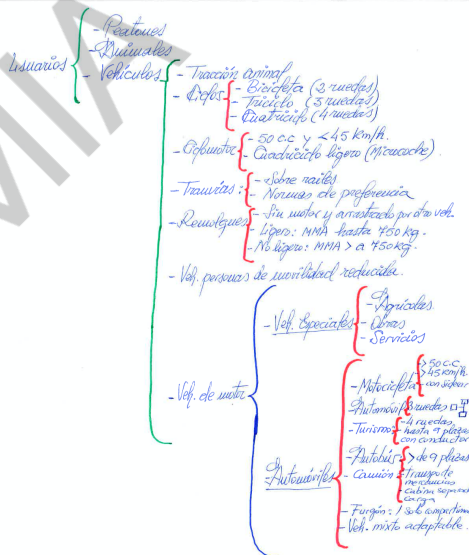 Usuarios
- Peatones
- Animales
- Vehículos
- Tracción animal
- Ciclos
- Bicicleta (2 ruedas)
- Triciclo (3 ruedas)
- Cuatriciclo (4 ruedas)
- Ciclomotor
- 50 c.c y < 45 km/h.
- Cuadriciclo ligero (Microcoche).
- Tranvías:
- Sobre raíles
- Normas de preferencia
- Remolques
- Sin motor y arrastrado por otro veh.
- Ligero: MMA hasta 750 kg.
- No ligero: MMA > a 750 kg.
- Veh. personas de movilidad reducida.
- Veh. de motor
- Veh. Especiales
- Agrícolas
- Obras
- Servicios
- Automóviles
- Motocicleta
-> 50 c.c.
-> 45 km/h.
- con sidecar
- Automóvil 3 ruedas
- Turismo
- 4 ruedas
- hasta 9 plazas
con conductor
- Autobús
> de 9 plazas
- Camión
- transporte
mercancías
- cabina separada
carga
- Furgón: 1 solo compartim
- Veh. mixto adaptable.